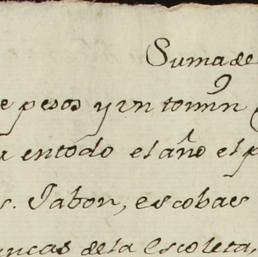 Suma de
e pesos y un tomin
en todo el año el p
s. Jabon, escobas
uncas de la Escoleta,